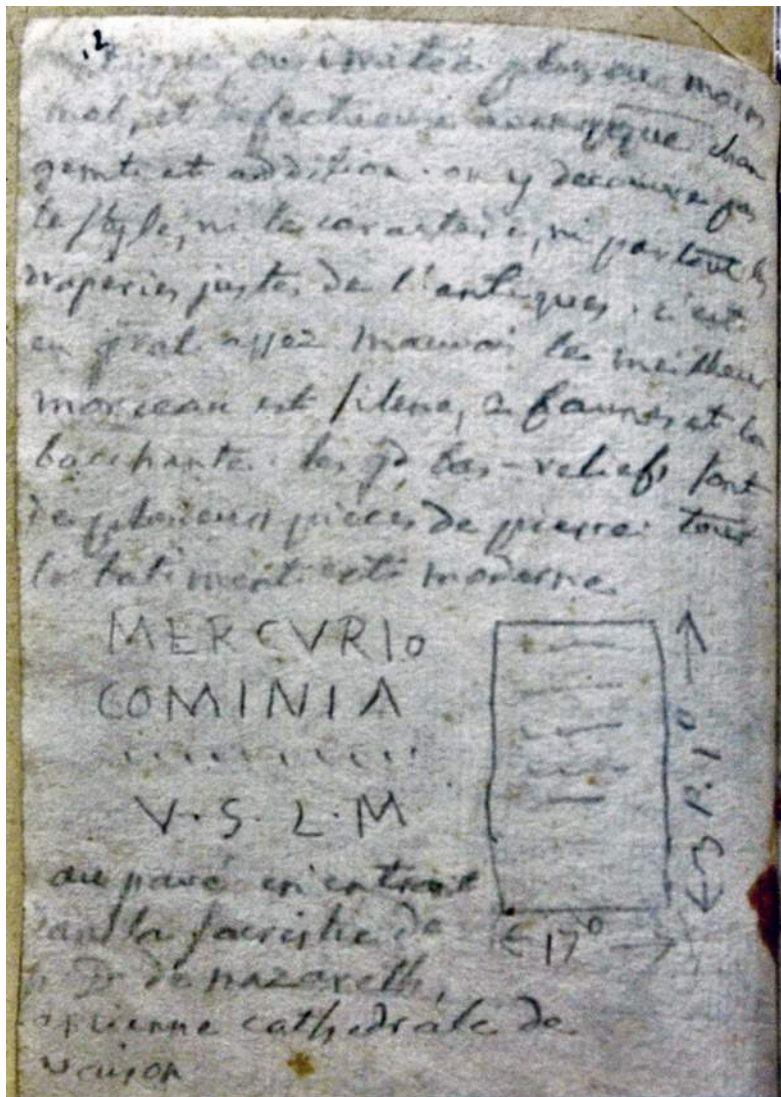 12
ou imitée plus ou moin
mal, et défectueuse chan
gemts et addition. on y decouvre pas
le style, ni le caractere, ni partout les
draperies justes de l'antiques. c'est
en gral assez mauvais le meilleur
morceau est silene, 2 faunes et la
bacchante. les gds bas-reliefs sont
de plusieurs pieces de pierre. tout
le batiment est moderne
MERCVRIO
COMINIA
.........
V·S·L·M
3 P. 1°
17°
au pavé en entrant
dans la sacristie de
n De de nazareth,
ancienne cathedrale de
vaison